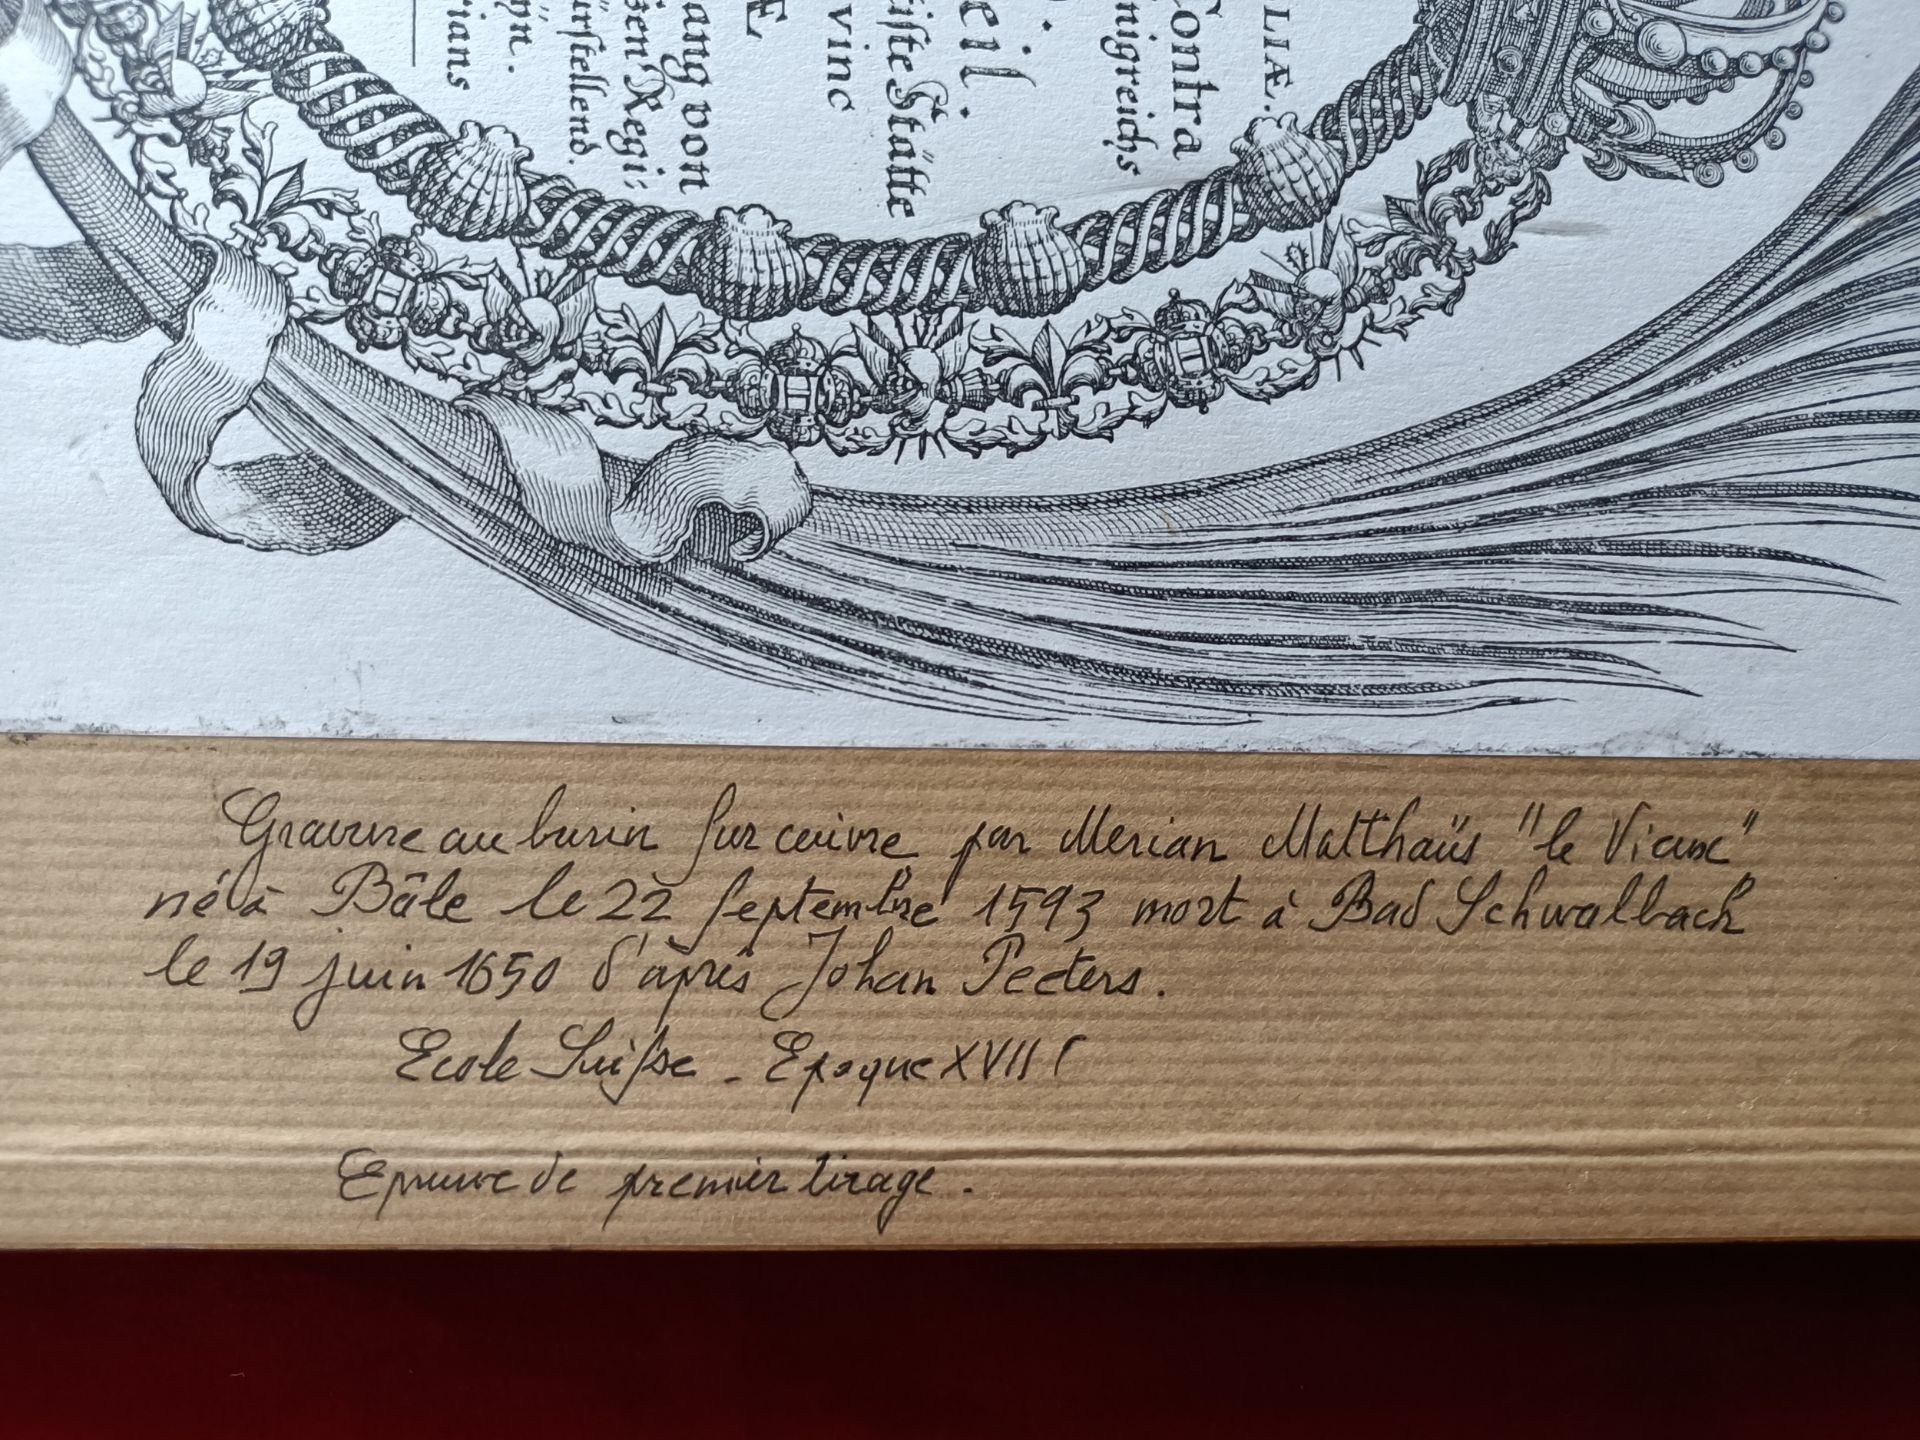 LIÆ.
Contra
nigreichs
eil.
eiſte Stätte
vinc
Æ
ang von
ſen Regi:
ürſtellend.
ÿn.
rians
Gravure au burin sur cuivre par Merian Matthaüs "le Vieux"
né à Bâle le 22 septembre 1593 mort à Bad Schwalbach
le 19 juin 1650 d'après Johan Peeters.
Ecole Suisse - Epoque XVII
Epreuve de premier tirage.